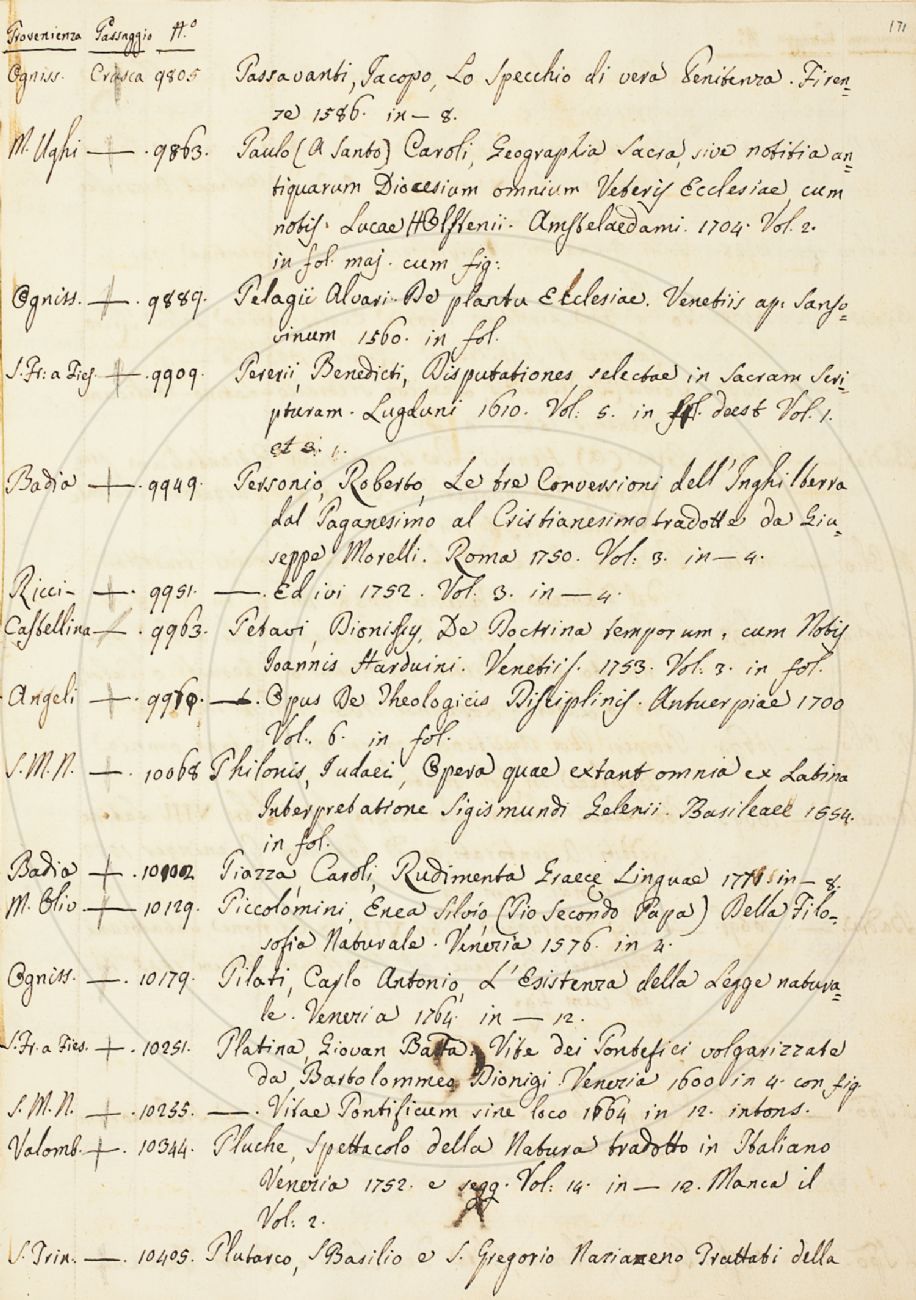 171
Provenienza Passaggio N.º
Ogniss. Crusca 9805 Passavanti, Jacopo, Lo Specchio di vera Penitenza. Firen=
ze 1586. in — 8.
M. Ughi — . 9863. Paulo (A Santo) Caroli, Geographia Sacra, sive notitia an=
tiquarum Dioecesium omnium Veteris Ecclesiae, cum
notis. Lucae Holstenii. Amstelaedami. 1704. Vol. 2.
in fol. maj. cum fig:
Ogniss. — . 9889. Pelagii Alvari. De planctu Ecclesiae. Venetiis ap: Sanso=
vinum 1560. in fol.
S. Fr: a Fies. — . 9909. Pererii, Benedicti, Disputationes selectae in Sacram Scri=
pturam. Lugduni 1610. Vol: 5. in fol. deest Vol. 1.
et 3.
Badia — . 9949. Personio, Roberto, Le tre Conversioni dell'Inghilterra
dal Paganesimo al Cristianesimo tradotte da Giu=
seppe Morelli. Roma 1750. Vol: 3. in — 4.
Ricci — . 9951. — . Ed ivi 1752. Vol. 3. in — 4.
Castellina — . 9963. Petavi, Dionissy, De Doctrina temporum, cum Notis
Joannis Harduini. Venetiis. 1753. Vol. 3. in fol.
Angeli — . — . Opus De Theologicis Disciplinis. Antuerpiae 1700
Vol. 6. in fol.
S. M. N. — . 10068 Philonis, Judaei, Opera quae extant omnia ex Latina
Interpretatione Sigismundi Gelenii. Basileae 1554.
in fol.
Badia — . Piazza, Caroli, Rudimenta Graecę Linguae in — 8.
M. Oliv — 10129. Piccolomini, Enea Silvio (Pio Secondo Papa) Della Filo=
sofia Naturale. Venezia 1576. in 4.
Ogniss. — . 10179. Pilati, Carlo Antonio, L'Esistenza della Legge natura=
le. Venezia 1764. in — 12.
S. Fr. a Fies. — . 10251. Platina, Giovan Batta. Vite dei Pontefici volgarizzate
da Bartolommeo Dionigi. Venezia 1600 in 4. con fig.
S. M. N. — . 10255. — . Vitae Pontificum sine loco 1664 in 12. intons.
Valomb. — . 10344. Pluche, Spettacolo della Natura tradotto in Italiano
Venezia 1752. e segg. Vol: 14. in — 12. Manca il
Vol: 2.
S. Trin. — . 10405. Plutarco, S. Basilio e S. Gregorio Nazianzeno Trattati della